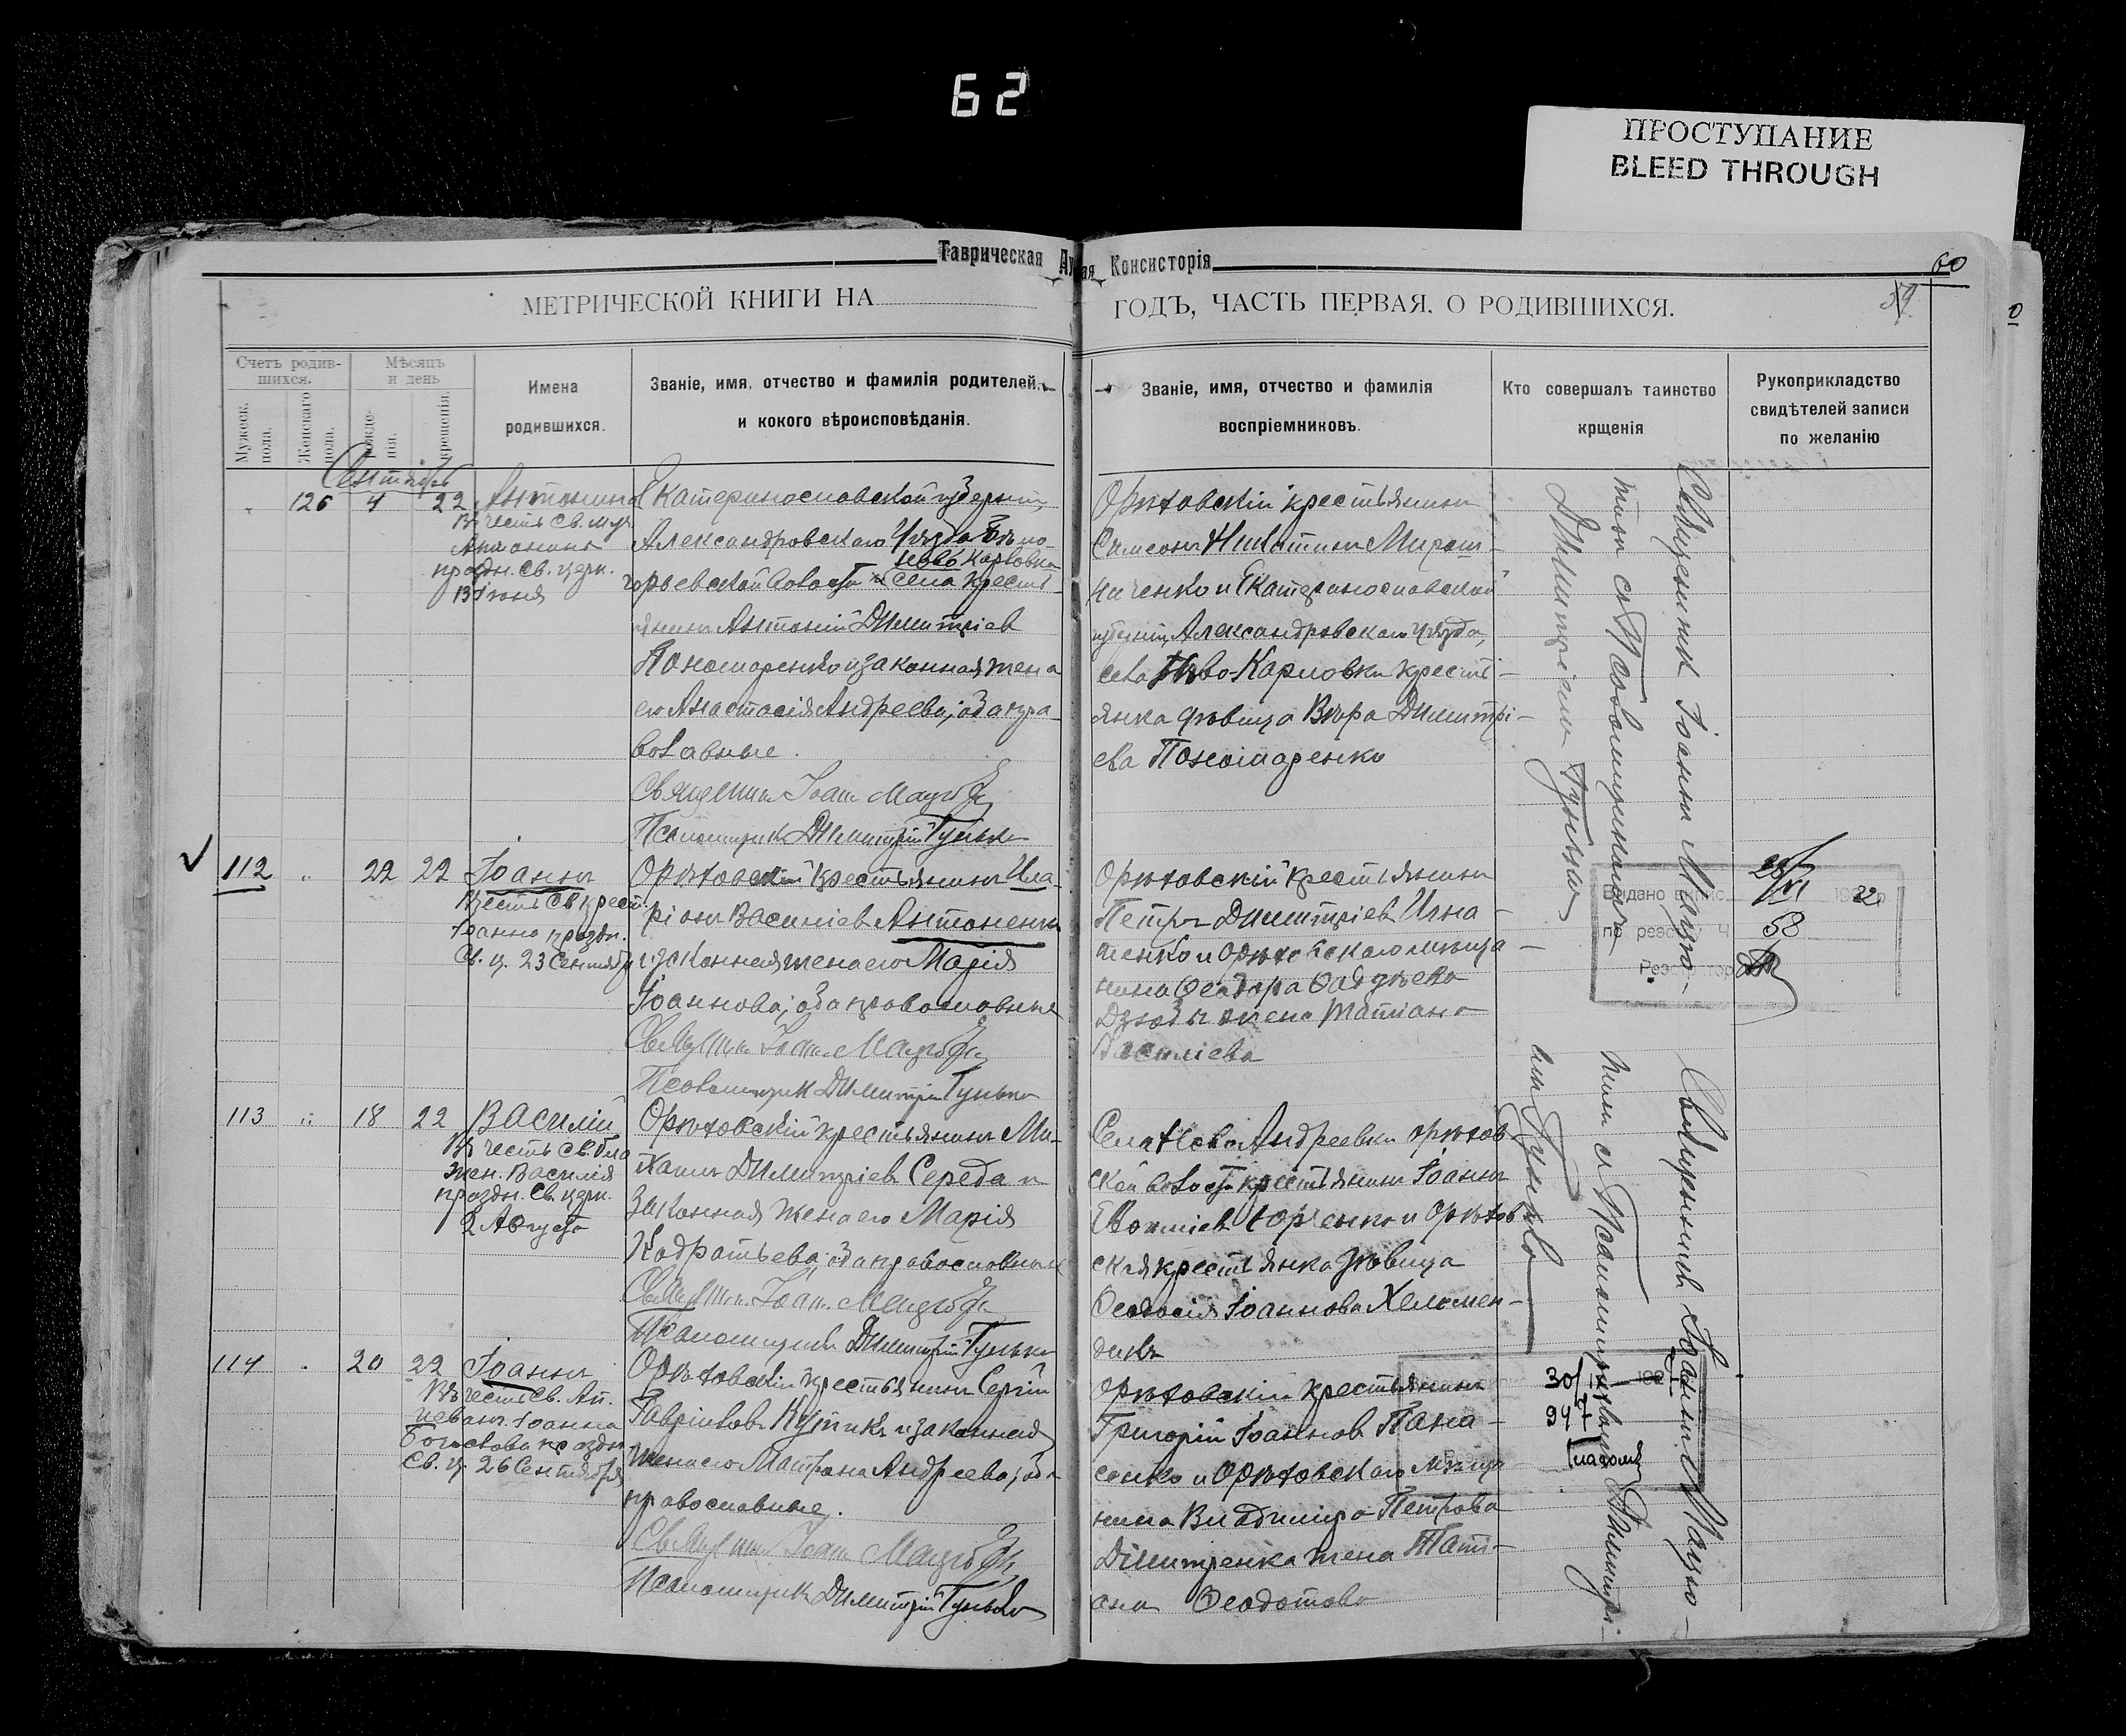 62
ПРОСТУПАНИЕ
BLEED THROUGH
Таврическая Ду ая Консисторія
60
59
МЕТРИЧЕСКОЙ КНИГИ НА
ГОДЪ, ЧАСТЬ ПЕРВАЯ, О РОДИВШИХСЯ.
Счетъ родив-
шихся.
Мужеск.
пола.
Женскаго
пола.
Мѣсяцъ
и день
рожде-
нія.
крещенія.
Имена
родившихся.
Званіе, имя, отчество и фамилія родителей,
и кокого вѣроисповѣданія.
Званіе, имя, отчество и фамилія
воспріемниковъ.
Кто совершалъ таинство
крщенія
Рукоприкладство
свидѣтелей записи
по желанію
Сентябрь
126 4 22 Антонина
Въ честь Св. муч.
Антонины
праздн. Св. церк.
13 Іюня
Екатеринославской губерніи,
Александровскаго Уѣзда
Ново Карловка
села крестъ-
янинъ Антоній Димитріев
Пономаренко и законная жена
его Анастасія Андреева; оба пра-
вославные.
Священник Іоан
Псаломщикъ Димитрій Гунько
Орѣховскій крестьянинъ
Симеонъ Никитинъ Мирош-
ниченко и Екатеринославской
губерніи, Александровскаго Уѣзда,
села Ново-Карловки крестъ-
янка дѣвица Вѣра Димитрі-
ева Пономаренко
112 22 22 Іоаннъ
Въ честь Св. крест.
Іоанна праздн.
Св. ц. 23 Сентября
Орѣховскій крестьянинъ Ила-
ріонъ Василіев Антоненко
и законная жена его Марія
Іоаннова; оба православные
Священник Іоан
Псаломщик Димитрій Гунько
Орѣховскій крестьянинъ
Петръ Димитріев Игна-
тенко и Орѣховскаго мѣща-
нина Ѳеодора Ѳаддѣева
Дзюбы жена Татіана
Василіева
Видано випис
по реєстру Ч
58
113 18 22 Василій
Въ честь Св. бла
жен. Василія
праздн. Св. церк.
2 Августа
Орѣховскій крестьянинъ Ми-
хаилъ Димитріев Середа и
законная жена его Марія
Кодратьева; оба православные
Священник Іоан
Псаломщикъ Димитрій Гунько
Села Андреевки орѣхов-
ской волости крестьянинъ Іоаннъ
и Орѣхов-
ская крестьянка дѣвица
Ѳеодосія Іоаннова Хеломен-
дикъ
114 20 22 Іоаннъ
Въ честь Св. Ап.
и еван. Іоанна
Богослова праздн.
Св. ц. 26 Сентября
Орѣховскій крестьянинъ Сергій
Гавріиловъ и законная
жена его Матрона Андреева; об.
православные.
Священник Іоан
Псаломщикъ Димитрій Гунько
Орѣховскій крестьянинъ
Григорій Іоаннов Пана-
сенко и Орѣховскаго мѣща-
нина Владиміра Петрова
Димитренка жена Тати-
ана Ѳеодотова
947
Священникъ Іоаннъ
Димитріемъ Гунько
Священникъ Іоаннъ